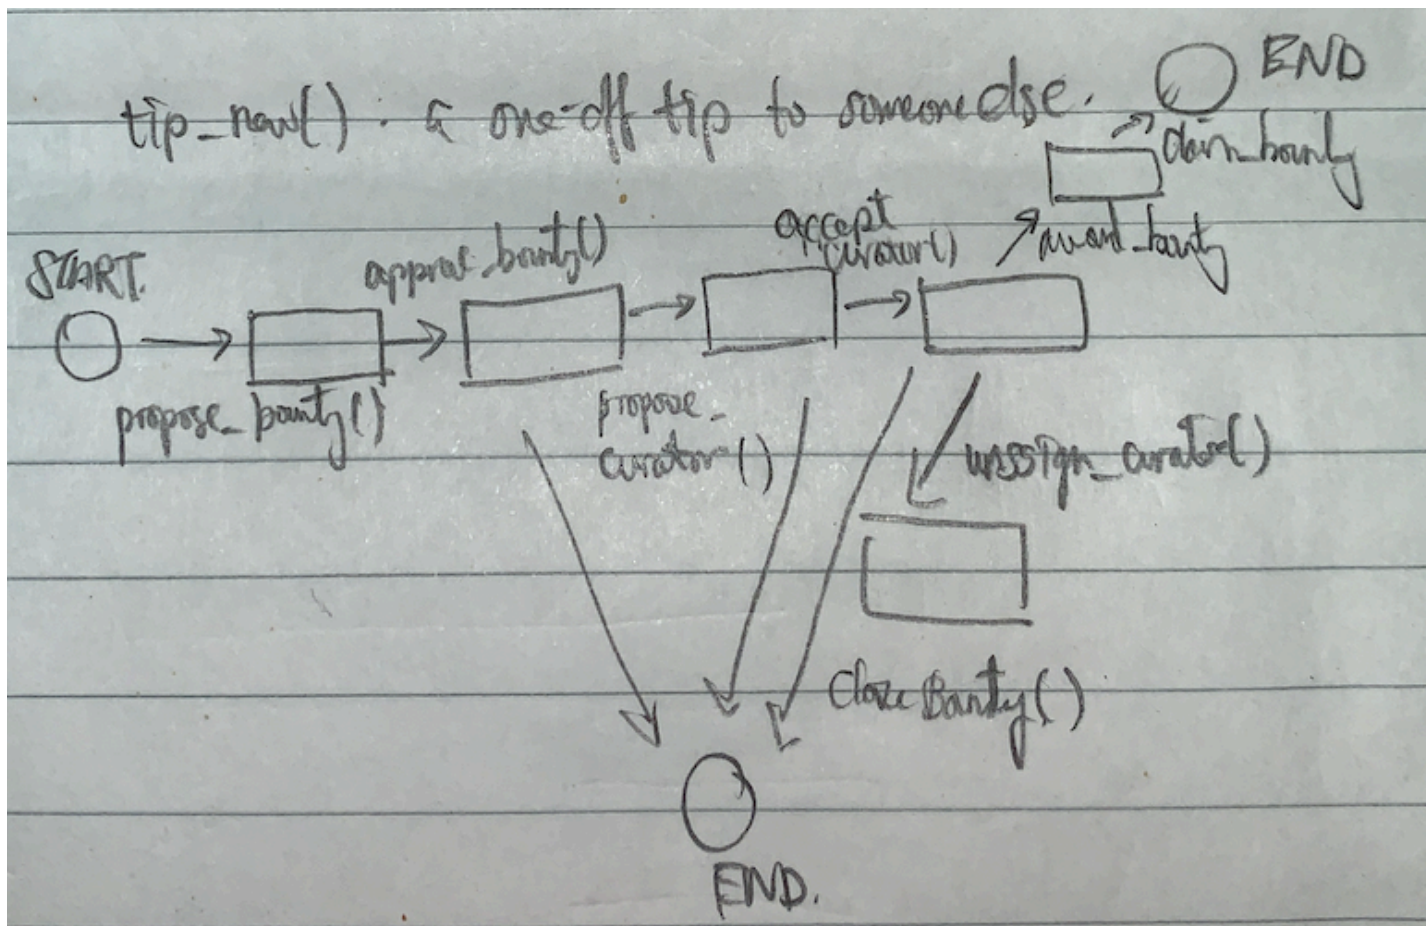 tip_new(). a one-off tip to someone else.
END
claim_bounty
award_bounty
accept
curator()
START.
approve_bounty()
propose_bounty()
propose_
curator()
unssign_curator()
Close Bounty()
END.